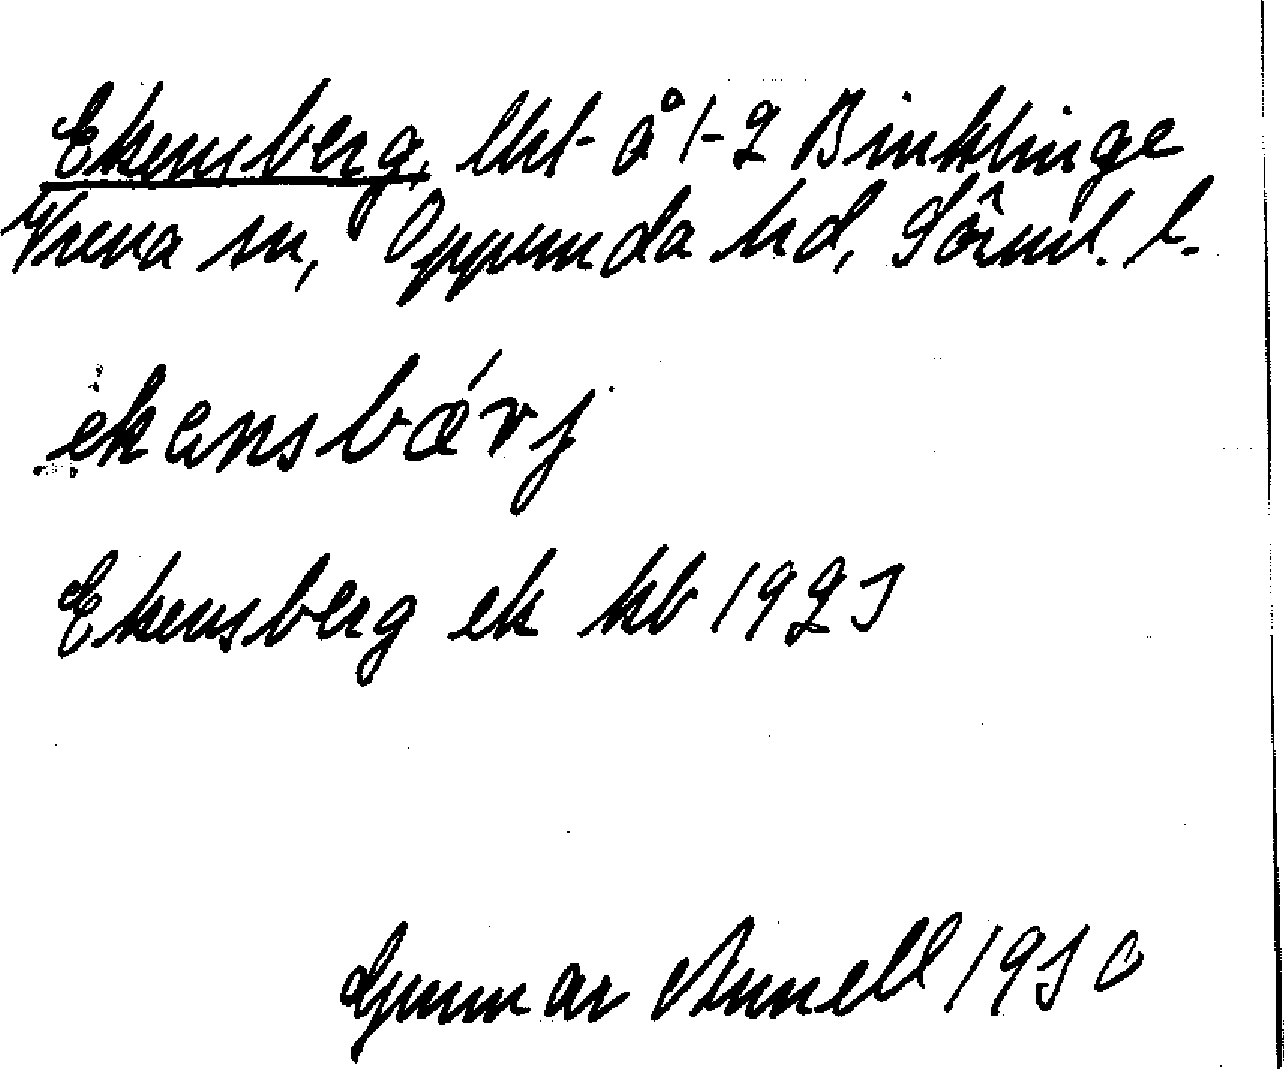 Ekensberg, lht å 1-2 Binklinge
Vrena sn, Oppunda hd, Sörml. l.
ekensbærj
Ekensberg ek kb 1925
Gunnar Annell 1930